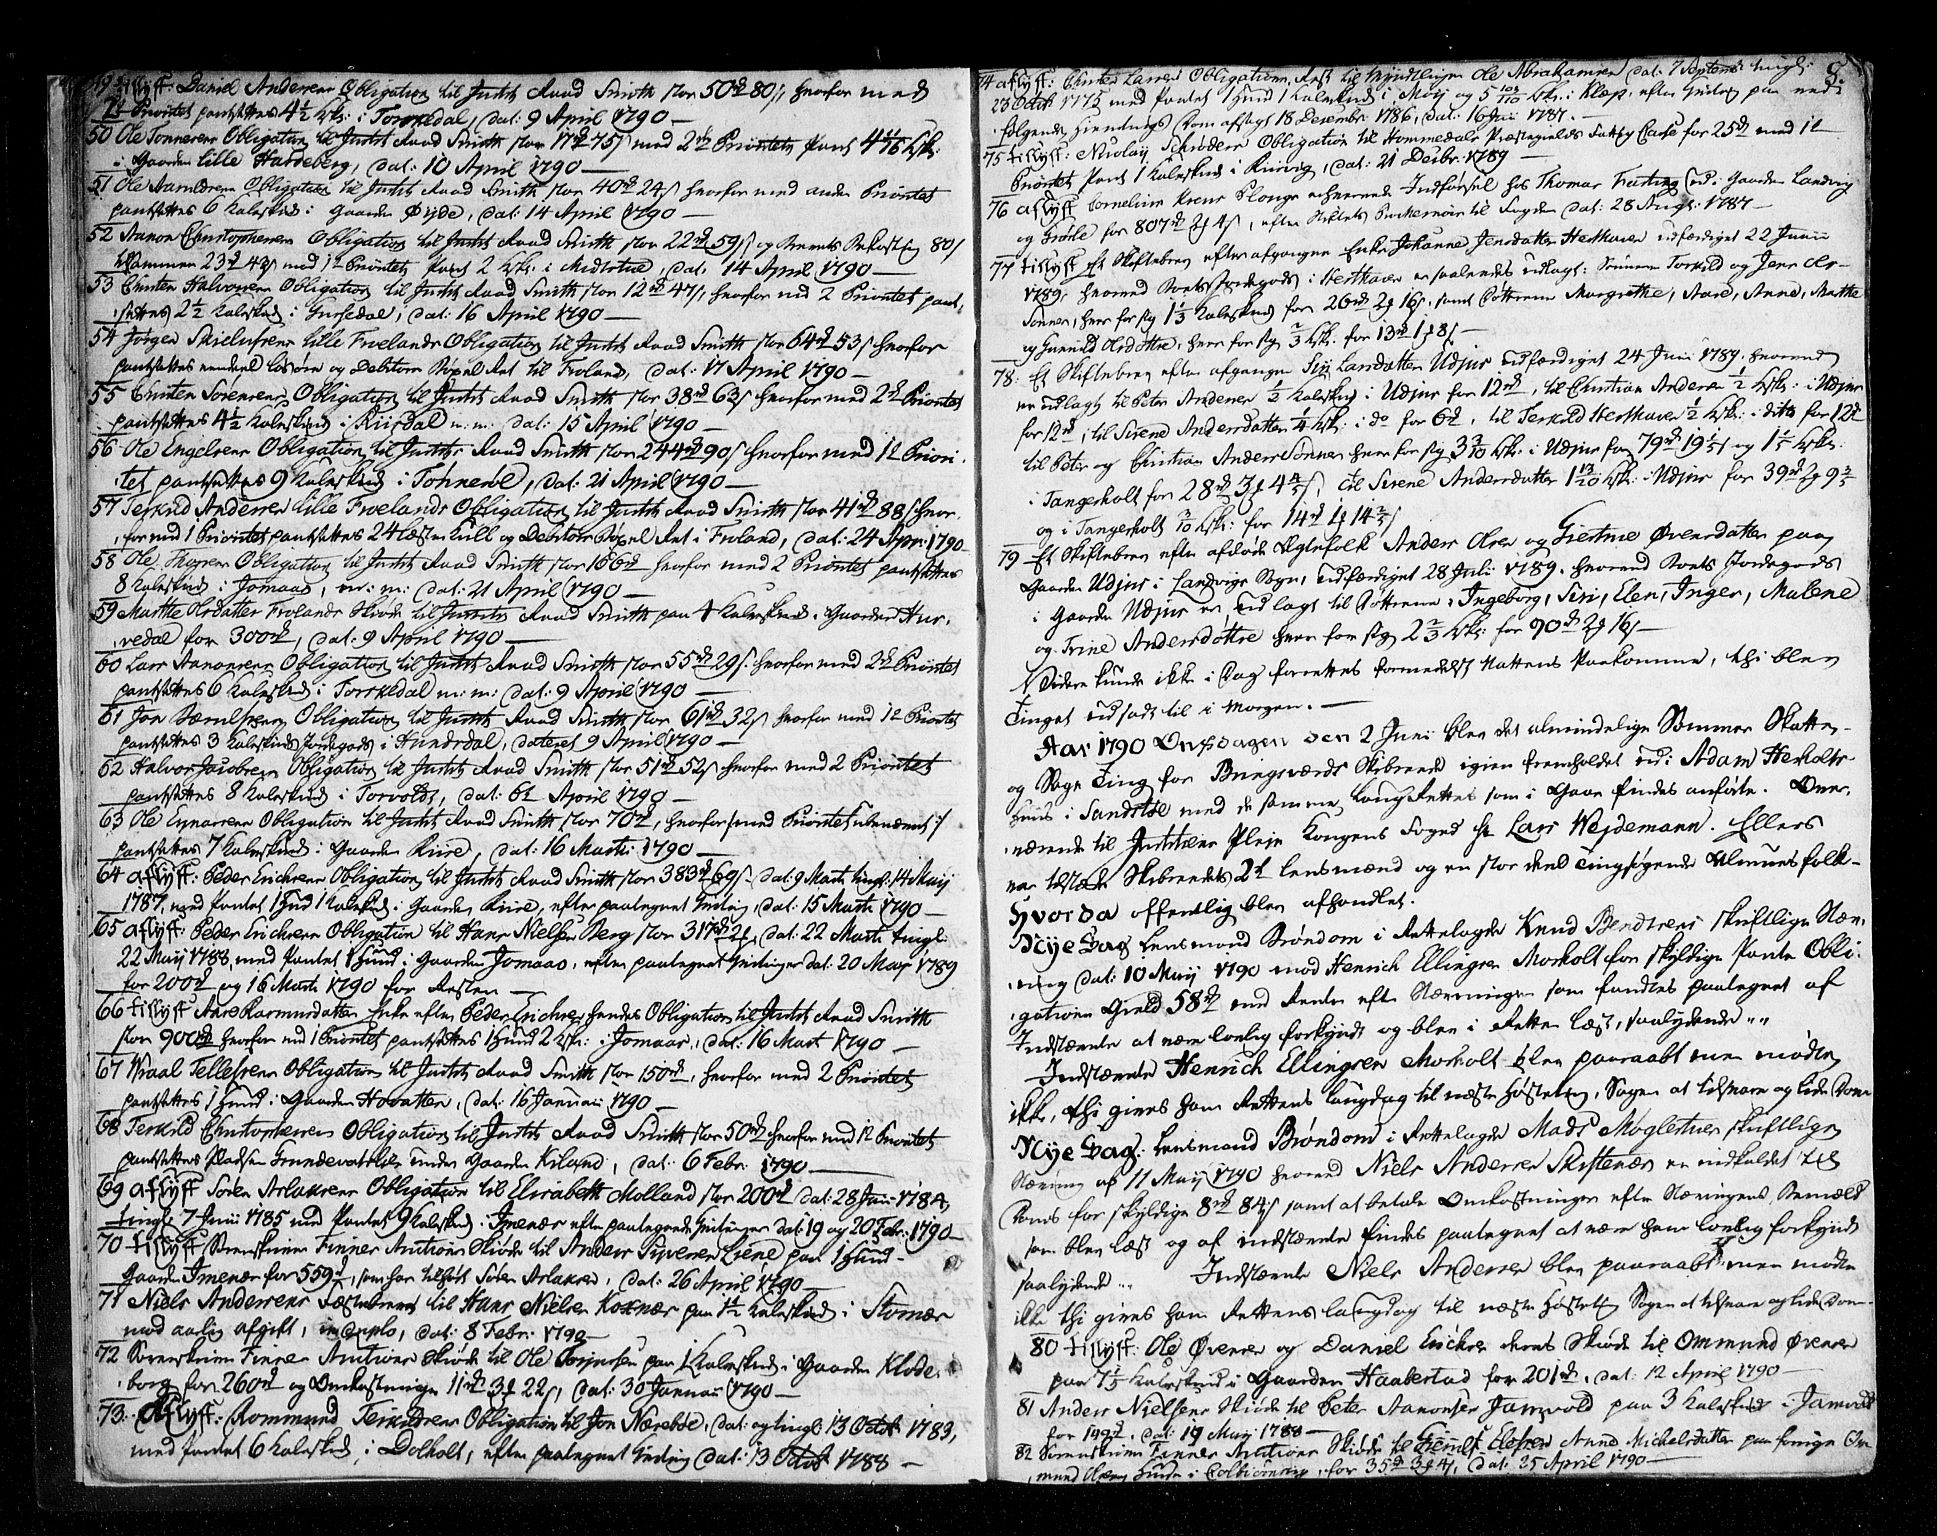 49 tillyst Daniel Andersens Obligation til Justits Raad Smith stor 50rd 80s, hvorfor med
1te Prioritet pantsættes 4 1/2 ksk: i Torskedal, dat: 9 April 1790 —
50 Ole Tonnesens Obligation til Justits Raad Smith stor 17rd 75s med 2den Prioritets Pant 4 1/16 ksk:
i Gaarden Lille Harreberg, dat: 10 April 1790 —
51 Ole Obligation til Justits Raad Smith stor 40rd 24s hvorfor med anden Prioritet
pantsættes 6 kalveskind i Gaarden Øyde, dat: 14 April 1790 —
52 Aanon Christophersens Obligation til Justits Raad Smith stor 22rd 59s og 80s
tilsammen 23rd 43s med 1te Prioritets Pant 2 ksk: i Midtstue, dat: 14 April 1790 —
53 Christen Halvorsens Obligation til Justits Raad Smith stor 12rd 47s, hvorfor med 2 Prioritet pant,
,sættes 2 1/2 kalveskind i dat: 16 April 1790 —
54 Jørgen lille Froelands Obligation til Justits Raad Smith stor 64rd 53s hvorfor
pantsættes løsøre og Debitors Bøxel Ret til Froland, dat: 17 April 1790 —
55 Christen Sørensens Obligation til Justits Raad Smith stor 38rd 63s hvorfor med 2d Prioritet
pantsættes 4 1/2 kalveskind i Riisdal m: m: dat: 15 April 1790 —
56 Ole Engelsens Obligation til Justits Raad Smith stor 244rd 90s hvorfor med 1te Priori,
,tet pantsættes 9 kalveskind i Tønnesøl, dat: 21 April 1790 —
57 Terkild Andersen Lille Froelands Obligation til Justits Raad Smith stor 41rd 88s hvor,
,for med 1 Prioritet pantsættes 24 læster kull og Debitors Bøxel Ret i Froland, dat: 24 Apr: 1790
58 Ole Obligation til Justits Raad Smith stor 166rd hvorfor med 2 Prioritet pantsættes
8 kalveskind i Jomaas, m: m: dat: 21 April 1790 —
59 Marthe Olsdatter Frolands Skiøde til Justits Raad Smith paa 4 kalveskind i Gaarden Hur,
vedal for 300rd, dat: 9 April 1790 —
60 Lars Aanonsens Obligation til Justits Raad Smith stor 55rd 29s: hvorfor med 2den Prioritet
pantsættes 6 kalveskind i Torskedal m: m: dat: 9 April 1790 —
61 Jon Obligation til Justits Raad Smith stor 61rd 32s hvorfor med 1te Prioritet
pantsættes 3 kalveskinds Jordegods i Hundsdal, dateret 9 April 1790 —
62 Halvor Jacobsens Obligation til Justits Raad Smith stor 51rd 52s hvorfor med 2 Prioritet
pantsættes 8 kalveskind i Torvolds, dat: 6te April 1790 —
63 Ole Eynarsens Obligation til Justits Raad Smith stor 70rd, hvorfor /:med Prioritet ubenævnt:/
pantsættes 7 kalveskind i Gaarden Riise, dat: 16 Marti 1790 —
64 aflyst: Peder Erichsens Obligation til Justits Raad Smith stor 383rd 69s, dat: 9 Marti tingl: 14 Maij
1787, med Pantet 1 Hud 1 kalveskind i Gaarden Riise, efter paategnet Qvitering, dat: 15 Marti 1790 —
65 aflyst: Peder Erichsens Obligation til Hans Nielsen Berg stor 317rd 2, dat: 22 Marti tingl:
22 Maij 1788, med Pantet 1 Hud i Gaarden Jomaas, efter paategnet Qvitinger dat: 20 May 1789
for 200rd og 16 Marti 1790 for Resten —
66 tillyst Aase Rasmusdatter Enke efter Peder Erichsen hendes Obligation til Justits Raad Smith
stor 900rd hvorfor med 1 Prioritet pantsættes 1 Hud 2 ksk: i Jomaas, dat: 16 Mart 1790 —
67 Wraal Tellefsens Obligation til Justits Raad Smith stor 150rd, hvorfor med 2 Prioritet
pantsættes 1 Hud i Gaarden Hovatten, dat: 16 Januarii 1790 —
68 Terkild Christophersens Obligation til Justits Raad Smith stor 50rd hvorfor med 1te Prioritet
pantsættes Pladsen under Gaarden Kiland, dat: 6 Febr: 1790 —
69 aflyst Søren Aslaksens Obligation til Elisabeth Molland stor 200rd dat: 28 Junii 1784,
tingl: 7 Junii 1785 med Pantet 9 kalveskind i Imenæs efter paategnede Qvitinger dat: 19 og 20 Febr: 1790 —
70 tillyst Sorenskriver Finnes Auctions Skiøde til Anders Syversen Liene paa 1 Hud
Gaarden Imenæs for 559rd, som har tilhørt Søren Aslaksen, dat: 26 April 1790 —
71 Niels Andersens Fæstebrev til Hans Nielsen Kornæs paa 1 1/2 kalveskind i
mod aarlig afgift, in duplo, dat: 8 Febr: 1790 —
72 Sorenskriver Finnes Auctions Skiøde til Ole paa 1 kalveskind i Gaarden Klode,
,borg for 260rd og Omkostninger 11rd 3 22s, dat: 30 Januarii 1790 —
73 Aflyst: Rommund Terkildsens Obligation til Jon Næsebøe, dat: og tingl: 13 Octbr 1783,
med Pantet 6 kalveskind i Dolholt, efter paategnet Qvitering dat: 13 Octbr 1788 —
8.
74 aflyst: Christen Larsens Obligation, Rest til Myndtlingen Ole Abrahamsen dat: 7 Septembr tingl:
23 Octbr 1775 med Pantet 1 Hud 1 kalveskind i Moy og 5 103/110 ksk: i Klep, efter Qvitering paa ned:
følgende, Rom afsagt 18 Decembr 1786, dat: 16 Junii 1787. —
75 tillyst: Nicolay Schröders Obligation til Hommedals Præstegields Fattig Casse for 25rd med 1te
Prioritets Pant 1 kalveskind i Risvig, dat: 21 Decbr 1789 —
76 aflyst Cornelius Krens Plougs erhvervede Indførsel hos Thomas Fasting ud i Gaarden Landvig
og Grøsle for 807rd 2 4s, efter Stiftets Promemorie til Fogden dat: 28 Aug: 1787 —
77 tillyst Et Skiftebrev efter afgangne Enke Johanne Jensdatter Hesthaven udfærdiget 22 Junii
1789, hvorved Boets Jordegods i Hesthaven er saaledes udlagt: Sønnerne Torkild og Jens Ols,
Sønner, hver for sig 1 1/3 kalveskind for 26rd 2 16s, samt Døttrene Margrethe, Aase, Anne, Marthe
og Gunild Olsdøttre, hver for sig 2/3 ksk: for 13rd 1 8s —
78. Et Skiftebrev efter afgangne Siri Larsdatter Udjus udfærdiget 24 Junii 1789, hvorved
er udlagt til Peter Andersen 1/2 kalveskind i Udjus for 12rd, til Christian Andersen 1/2 ksk: i Udjus
for 12rd, til Sirene Andersdatter 1/4 ksk: i do for 6rd, til Terkild Hesthaven 1/2 ksk: i ditto for 12rd
til Peter og Christian Anders Sønner hver for sig 3 3/10 ksk: i Udjus for 79rd 19 1/5s og 1 1/5 ksk:
i Tangerholt for 28rd 3 4 4/5s, til Sirene Andersdatter 1 13/20 ksk: i Udjus for 39rd 2 9 3/5
og i Tangerholt 3/10 ksk: for 14rd 1 14 2/5s
79 Et Skiftebrev efter afdøde Ægtefolk Anders Olsen og Giertrue Øvensdatter paa
Gaarden Udjus i Landvigs Sogn, udfærdiget 28 Julii 1789. hvorved Boets Jordegods
i Gaarden Udjus er udlagt til Døttrene, Ingeborg, Siri, Elen, Inger, Malene
og Trine Andersdøttre hver for sig 2 2/3 ksk: for 90rd 2 16s —
Videre kunde ikke i Dag forrettes formedelst Nattens Paakomme, thi blev
Tinget udsadt til i Morgen. —
Aar 1790 Onsdagen den 2 Junii blev det almindelige Sommer Skatte-
og Sage Ting for Bringsværds Skibrede igien fremholdet ud i Adam Hesholts-
huus i Sandstøe med de samme Laug Rettes som i Gaar findes anførte. Over,
,værende til Justitiens Pleje Kongens Foged Hr Lars Weydemann. Ellers
var tilstæde Skibredets 2de Lensmænd og en stor deel Tingsøgende Almues folk-
Hvorda offentlig blev afhandlet.
Nye Sag Lensmand Brøndom i Rettelagde Knud Bendtsens skriftlige Stev,
,ning dat: 10 Maij 1790 mod Henrich Ellingsen Morholt for skyldige Pante Obli,
,gations Gield 58rd med Renter efter Stævningen som fandtes paategnet af
Indstævnte at være lovlig forkyndt og blev i Retten læst, saalydende ,, ,,
Indstævnte Henrich Ellingsen Morholt blev paaraabt men mødte
ikke, thi gives ham Rettens Laugdag til næste Høsteting, Sagen at tilsvare og lide Dom
Nye Sag: Lensmand Brøndom i Rettelagde Mads Møglestues skriftlige
Stævning af 11 Maij 1790 hvorved Niels Andersen Skistenæs er indkaldet til
Doms for skyldige 8rd 84s samt at betale Omkostninger efter Stævningens Bemæld
som blev læst og af indstævnte findes paategnet at være ham lovlig forkyndt
saalydende ,, ,, Indstævnte Niels Andersen blev paaraabt men mødte
ikke thi gives ham Rettens laugdag til næste Høsteting Sagen at tilsvare og lide Dom-
80 tillyst: Ole Øvensen og Daniel Erichsen deres Skiøde til Ommund Øvensen
paa 7 1/5 kalveskind i Gaarden Haabestad for 201rd, dat: 12 April 1790 —
81 Anders Nielsens Skiøde til Peter Aanonsen Jamvold paa 3 kalveskind i Jamvold
for 199rd, dat: 19 Maij 1788 —
82 Sorenskriver Finnes Auctions Skiøde til Anne Michelsdatter paa forrige Om,
,mund Olsens Huus i for 35rd 3 4s, dat: 25 April 1790 —